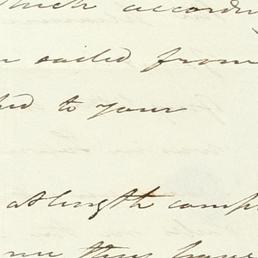 which accordin
sailed from
ed to your
at length comp
me they have